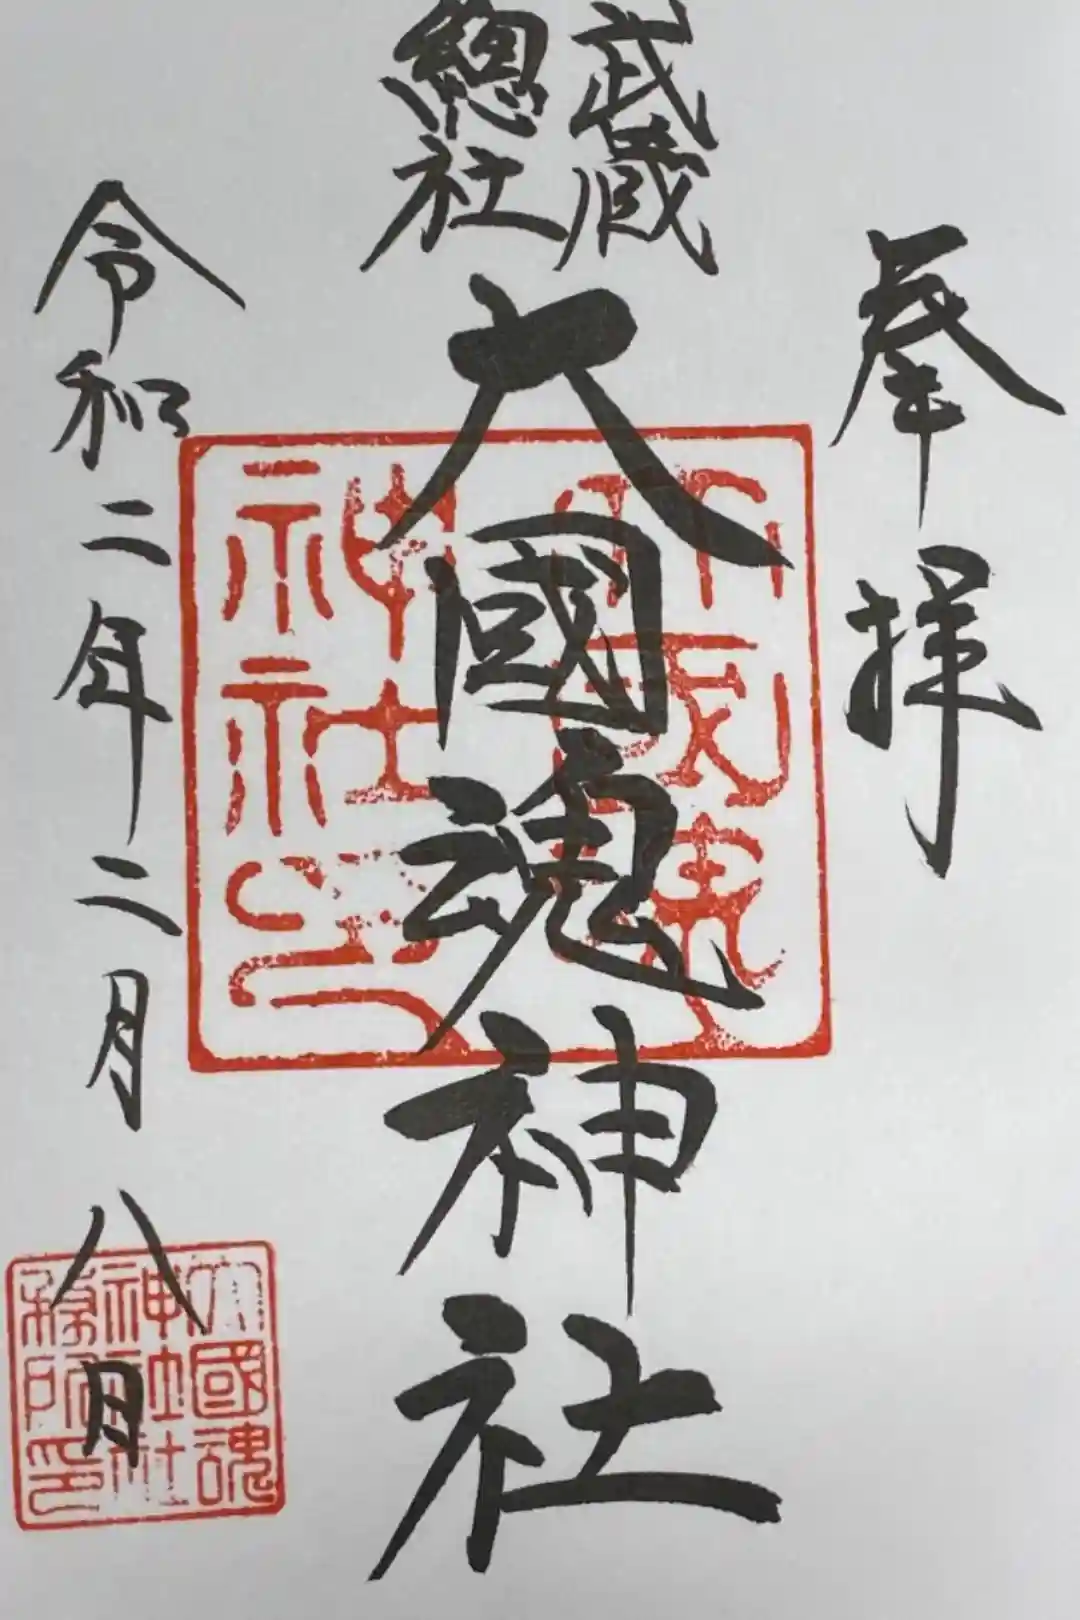 奉拝
武蔵
總社
大國魂神社
令和二年二月八日
大國魂
神社
大國魂
神社社
務所印